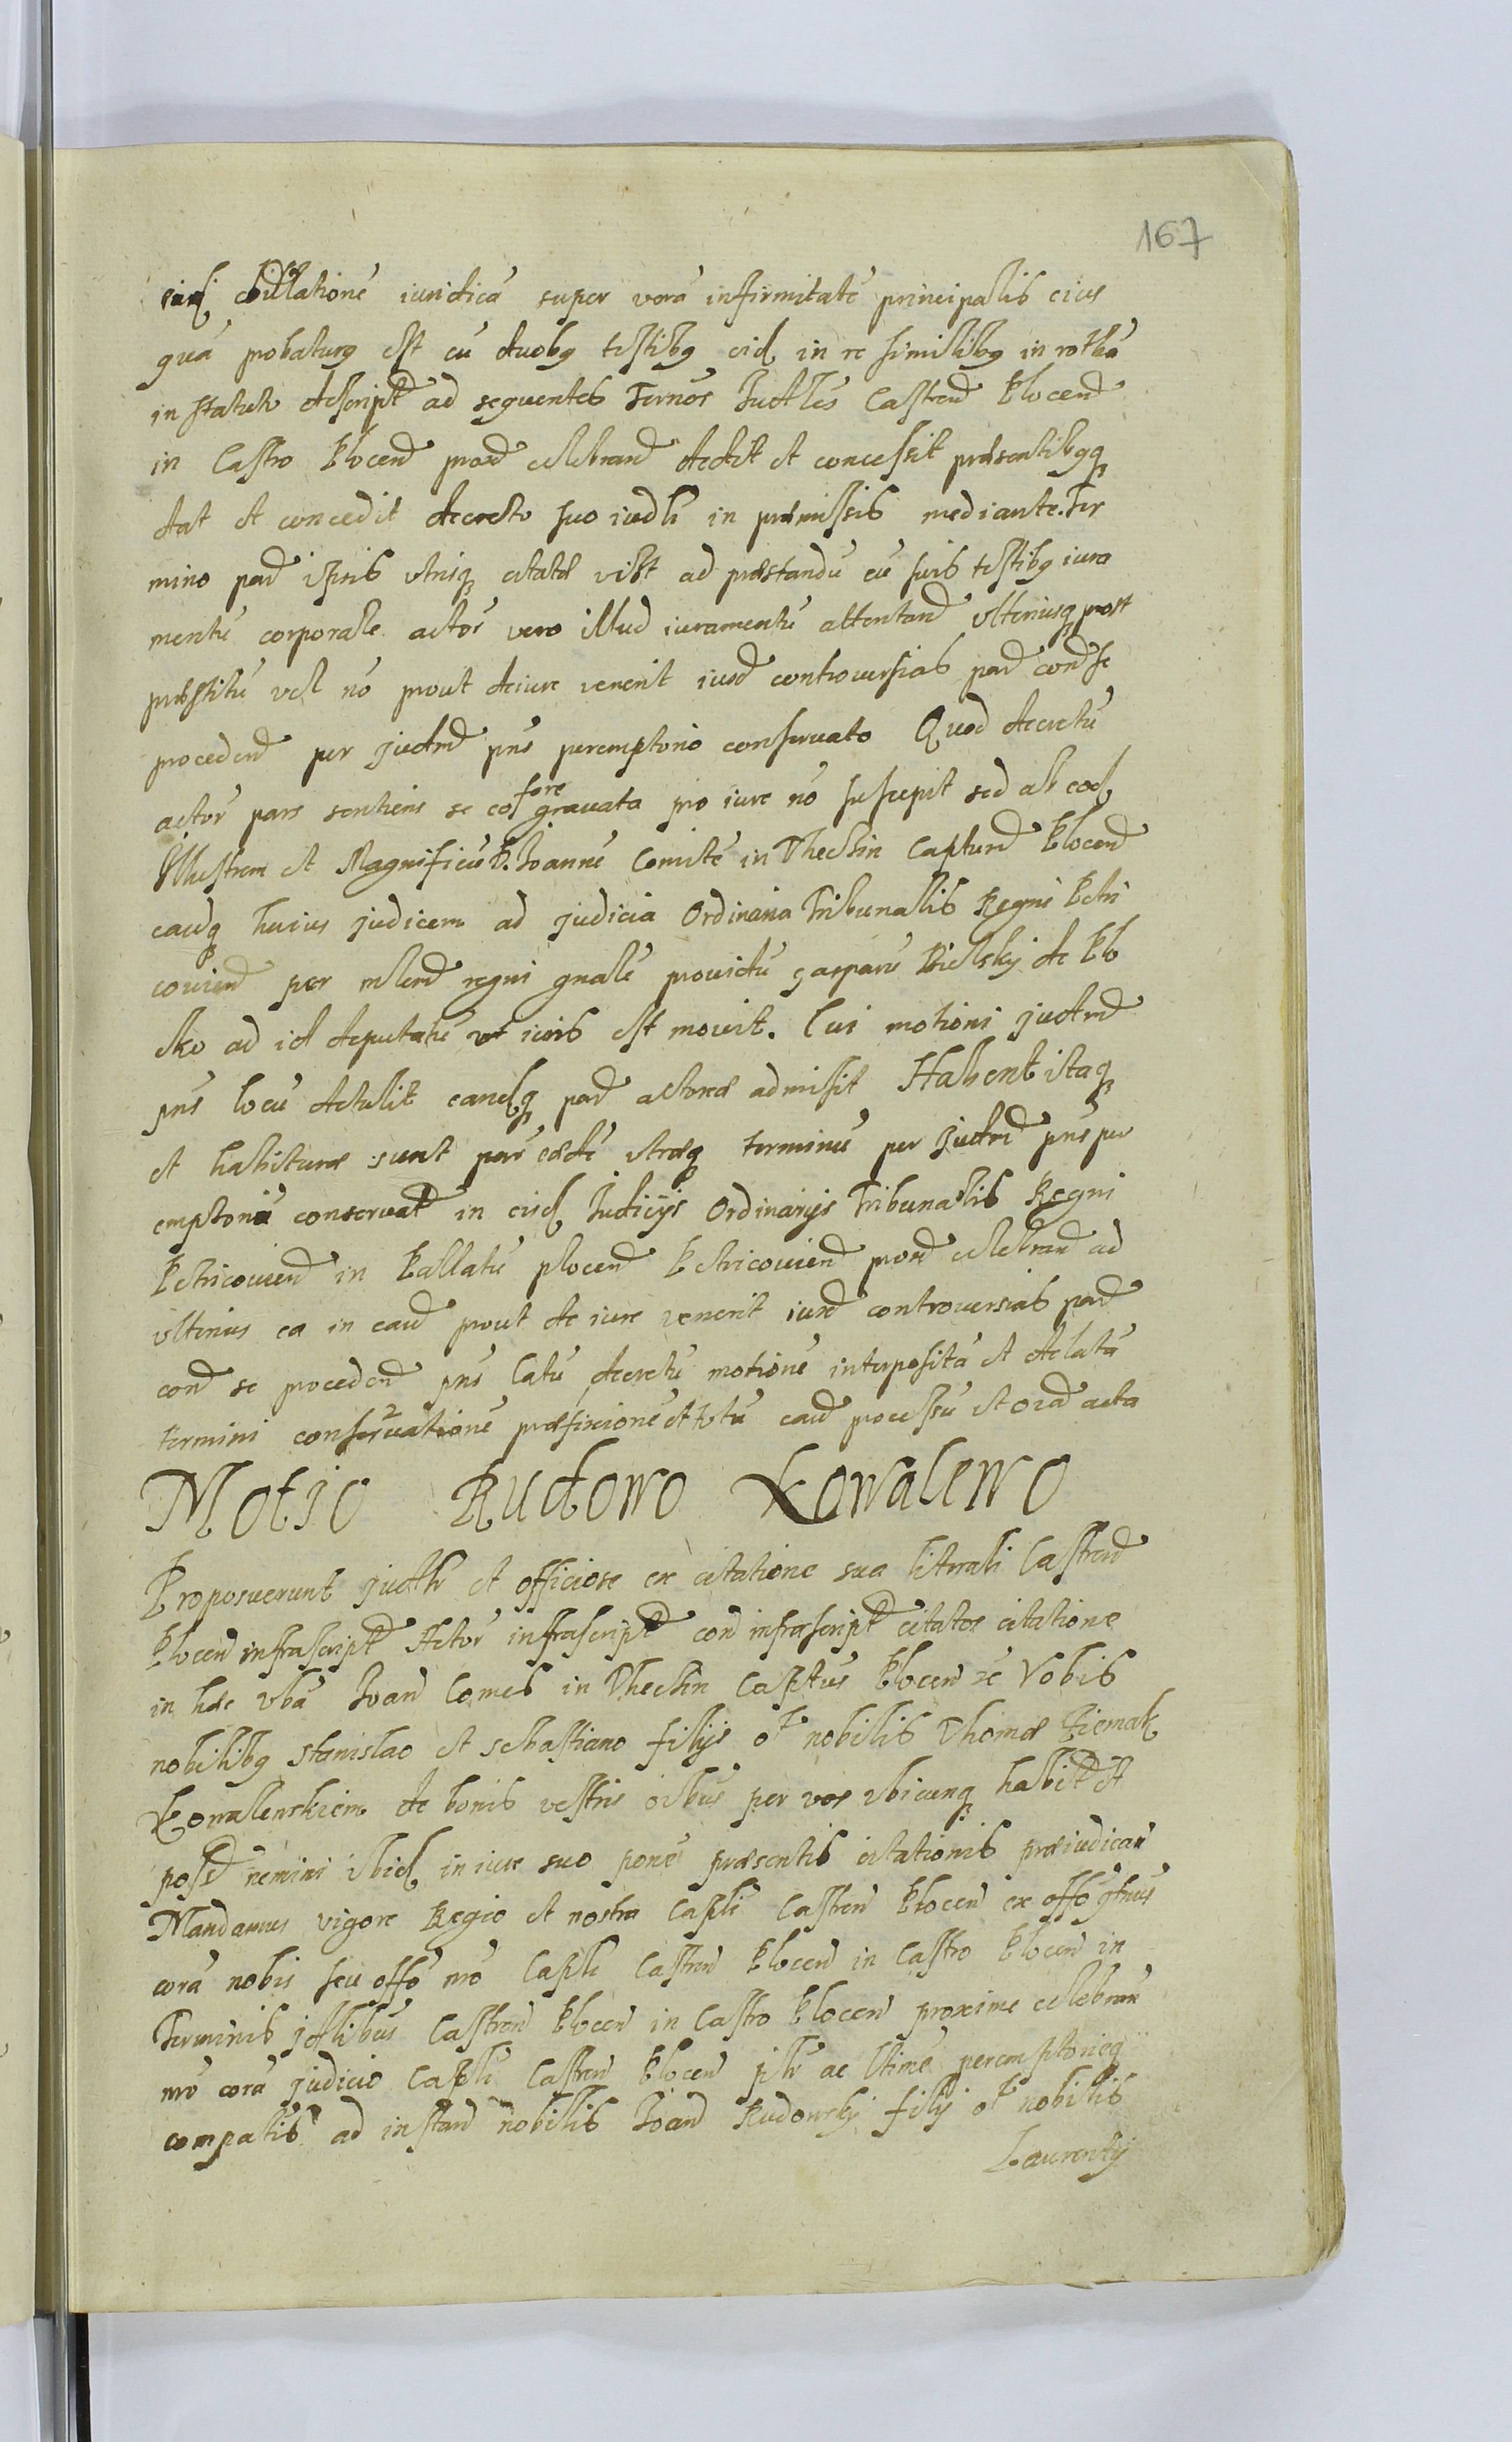 167
dillatione iuridica super vera infirmitate principalis eius
qua probaturq est cu duobq testibq eid in re similibq in rotha
in statuto descript ad sequentes Termos Judles Castren Plocen
in Castro Plocen prox celebran dedit et concessit præsentibqq
dat et concedit decreto suo iudli in præmissis mediante. Ter
mino par ipsis utrisq citatæ vist ad præstandu cu suis testibq iura
mentu corporale actor vero illud iuramentu attentand ulteriusq post
præstitu vel no prout de iure venerit iuxt controversias par cond se
proceden per judm pns peremptorio conservato Quod decretu
actor pars sentiens se eo fore gravata pro iure no suscepit sed ab eod
Illustrem et Magnificu D. Joanne Comite in Thechin Capturn Plocen
causq huius judicem ad judicia Ordinaria Tribunalis Regni Petri
covien per mlem regni gnale providu Gasparu Bielsky de Plo
cko ad id deputatu ut iuris est movit. Cui motioni judm
pns locu detulit eandq par actorea admisit Habent itaq
et habituræ sunt par eæde utræq terminu per judm pns per
emptoriu conservat in eisd Judicijs Ordinarijs Tribunalis Regni
Petricovien in Pallatu plocen Petricovien prox celebran ad
ulterius ea in causa prout de iure venerit iuxt controversias par
cond se proceden pns latu decretu motione interposita et delata
termini conservatione præfixione et totu caus processu et oia acta
Motio Rudowo Kowalewo
Proposuerunt judlr et officiose ex citatione sua literali Castren
Plocen infrascript Actor infrascript con infrascript citatos citatione
in hæc vba Joan Comes in Thechin Captus Plocen rc Vobis
nobilibq Stanislao et Sebastiano filijs ol nobilis Thomæ Piemak
Kowalewskiem de bonis vestris oibus per vos ubicunq habit et
poss nemini ibid in iure suo pone præsentis citationis præiudican
Mandamus vigore Regio et nostra Caplī Castren Plocen ex offo qtnus
cora nobis seu offo nro Capli Castren Plocen in Castro Plocen in
Terminis jdlibus Castren Plocen in Castro Plocen proxime celebran
nro cora judicio Capli Castren Plocen plr ac ltime peremptorieq
compatis ad instan nobilis Joan Rudowsky filij ol nobilis
Laurentij